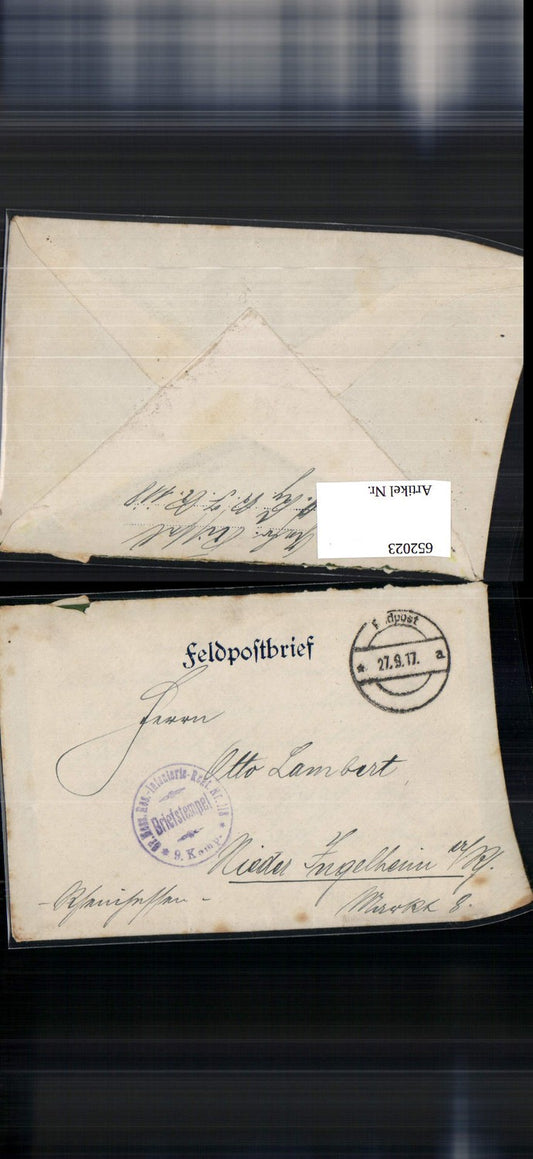 Artikel Nr.
652023
Feldpostbrief
Feldpost
* 27.9.17. a
Herrn
Otto Lambert
Res.-Infanterie-Regt. Nr. 118
Briefstempel
* 9. Komp. *
Nieder Ingelheim a/Rh.
- Rheinhessen -
Markt 8.